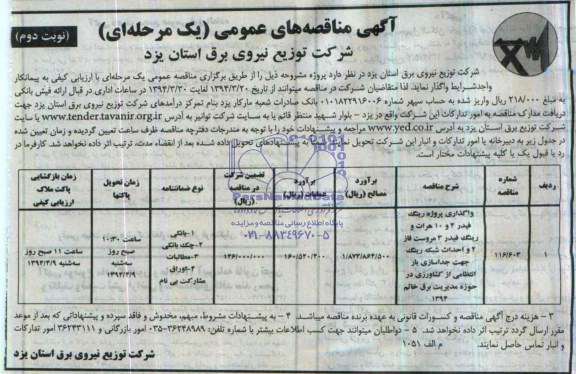 آگهی مناقصه‌های عمومی (یک مرحله‌ای)
(نوبت دوم)
شرکت توزیع نیروی برق استان یزد
شرکت توزیع نیروی برق استان یزد در نظر دارد پروژه مشروحه ذیل را از طریق برگزاری مناقصه عمومی یک مرحله‌ای با ارزیابی کیفی به پیمانکار
واجدشرایط واگذار نماید. لذا متقاضیان شرکت در مناقصه میتوانند از تاریخ ۱۳۹۴/۳/۲۰ لغایت ۱۳۹۴/۳/۳۰ در ساعات اداری در قبال ارائه فیش بانکی
به مبلغ ۲۱۸/۰۰۰ ریال واریز شده به حساب سپهر شماره ۰۱۰۱۸۲۲۹۱۶۰۰۶ بانک صادرات شعبه مارکار یزد بنام تمرکز درآمدهای شرکت توزیع برق استان یزد جهت
دریافت مدارک مناقصه به امور تدارکات این شرکت واقع در یزد – بلوار شهید منتظر قائم یا به سایت شرکت توانیر به آدرس www.tender.tavanir.org.ir یا سایت
شرکت توزیع برق استان یزد به آدرس www.yed.co.ir مراجعه و پیشنهادات خود را با توجه به مندرجات دفترچه مناقصه ظرف ساعت تعیین گردیده و زمان تعیین شده
در جدول زیر به دبیرخانه یا امور تدارکات و انبار این شرکت تحویل نمایند. به پیشنهادهای تحویل داده شده بعد از انقضاء مدت، ترتیب اثر داده نخواهد شد. کارفرما در
رد یا قبول یک یا کلیه پیشنهادات مختار است.
ردیف | شماره مناقصه | شرح مناقصه | برآورد مصالح (ریال) | برآورد عملیات (ریال) | تضمین شرکت در مناقصه (ریال) | نوع ضمانتنامه | زمان تحویل پاکتها | زمان بازگشایی پاکت ملاک ارزیابی کیفی
۱ | ۱۱۶/۶۰۳ | واگذاری پروژه رینگ فیدر ۲ و ۱۰ هرات و رینگ فیدر ۳ مروست فاز ۲ و احداث شبکه رینگ جهت جداسازی بار انتظامی از کشاورزی در حوزه مدیریت برق خاتم ۱۳۹۴ | ۱/۸۷۳/۸۶۴/۵۰۰ | ۱۶۰/۵۲۰/۴۰۰ | ۱۴۶/۰۰۰/۰۰۰ | ۱-بانکی ۲-چک بانکی ۳-مطالبات ۴-اوراق مشارکت بی نام | ساعت ۱۰:۳۰ صبح روز سه‌شنبه | ساعت ۱۱ صبح روز سه‌شنبه
پایگاه اطلاع رسانی مناقصه و مزایده
۰۲۱-۸۸۳۴۹۶۷۰-۵
۳ – هزینه درج آگهی مناقصه و کسورات قانونی به عهده برنده مناقصه میباشد. ۴ – به پیشنهادات مشروط، مبهم، مخدوش و فاقد سپرده و پیشنهاداتی که بعد از موعد
مقرر ارسال گردد ترتیب اثر داده نخواهد شد. ۵ – داوطلبان میتوانند جهت کسب اطلاعات بیشتر با شماره تلفن: ۳۶۲۴۸۹۸۹–۰۳۵ امور بازرگانی و ۳۶۲۴۳۱۱۱ امور تدارکات
و انبار تماس حاصل نمایند.
م الف ۱۰۵۱
شرکت توزیع نیروی برق استان یزد